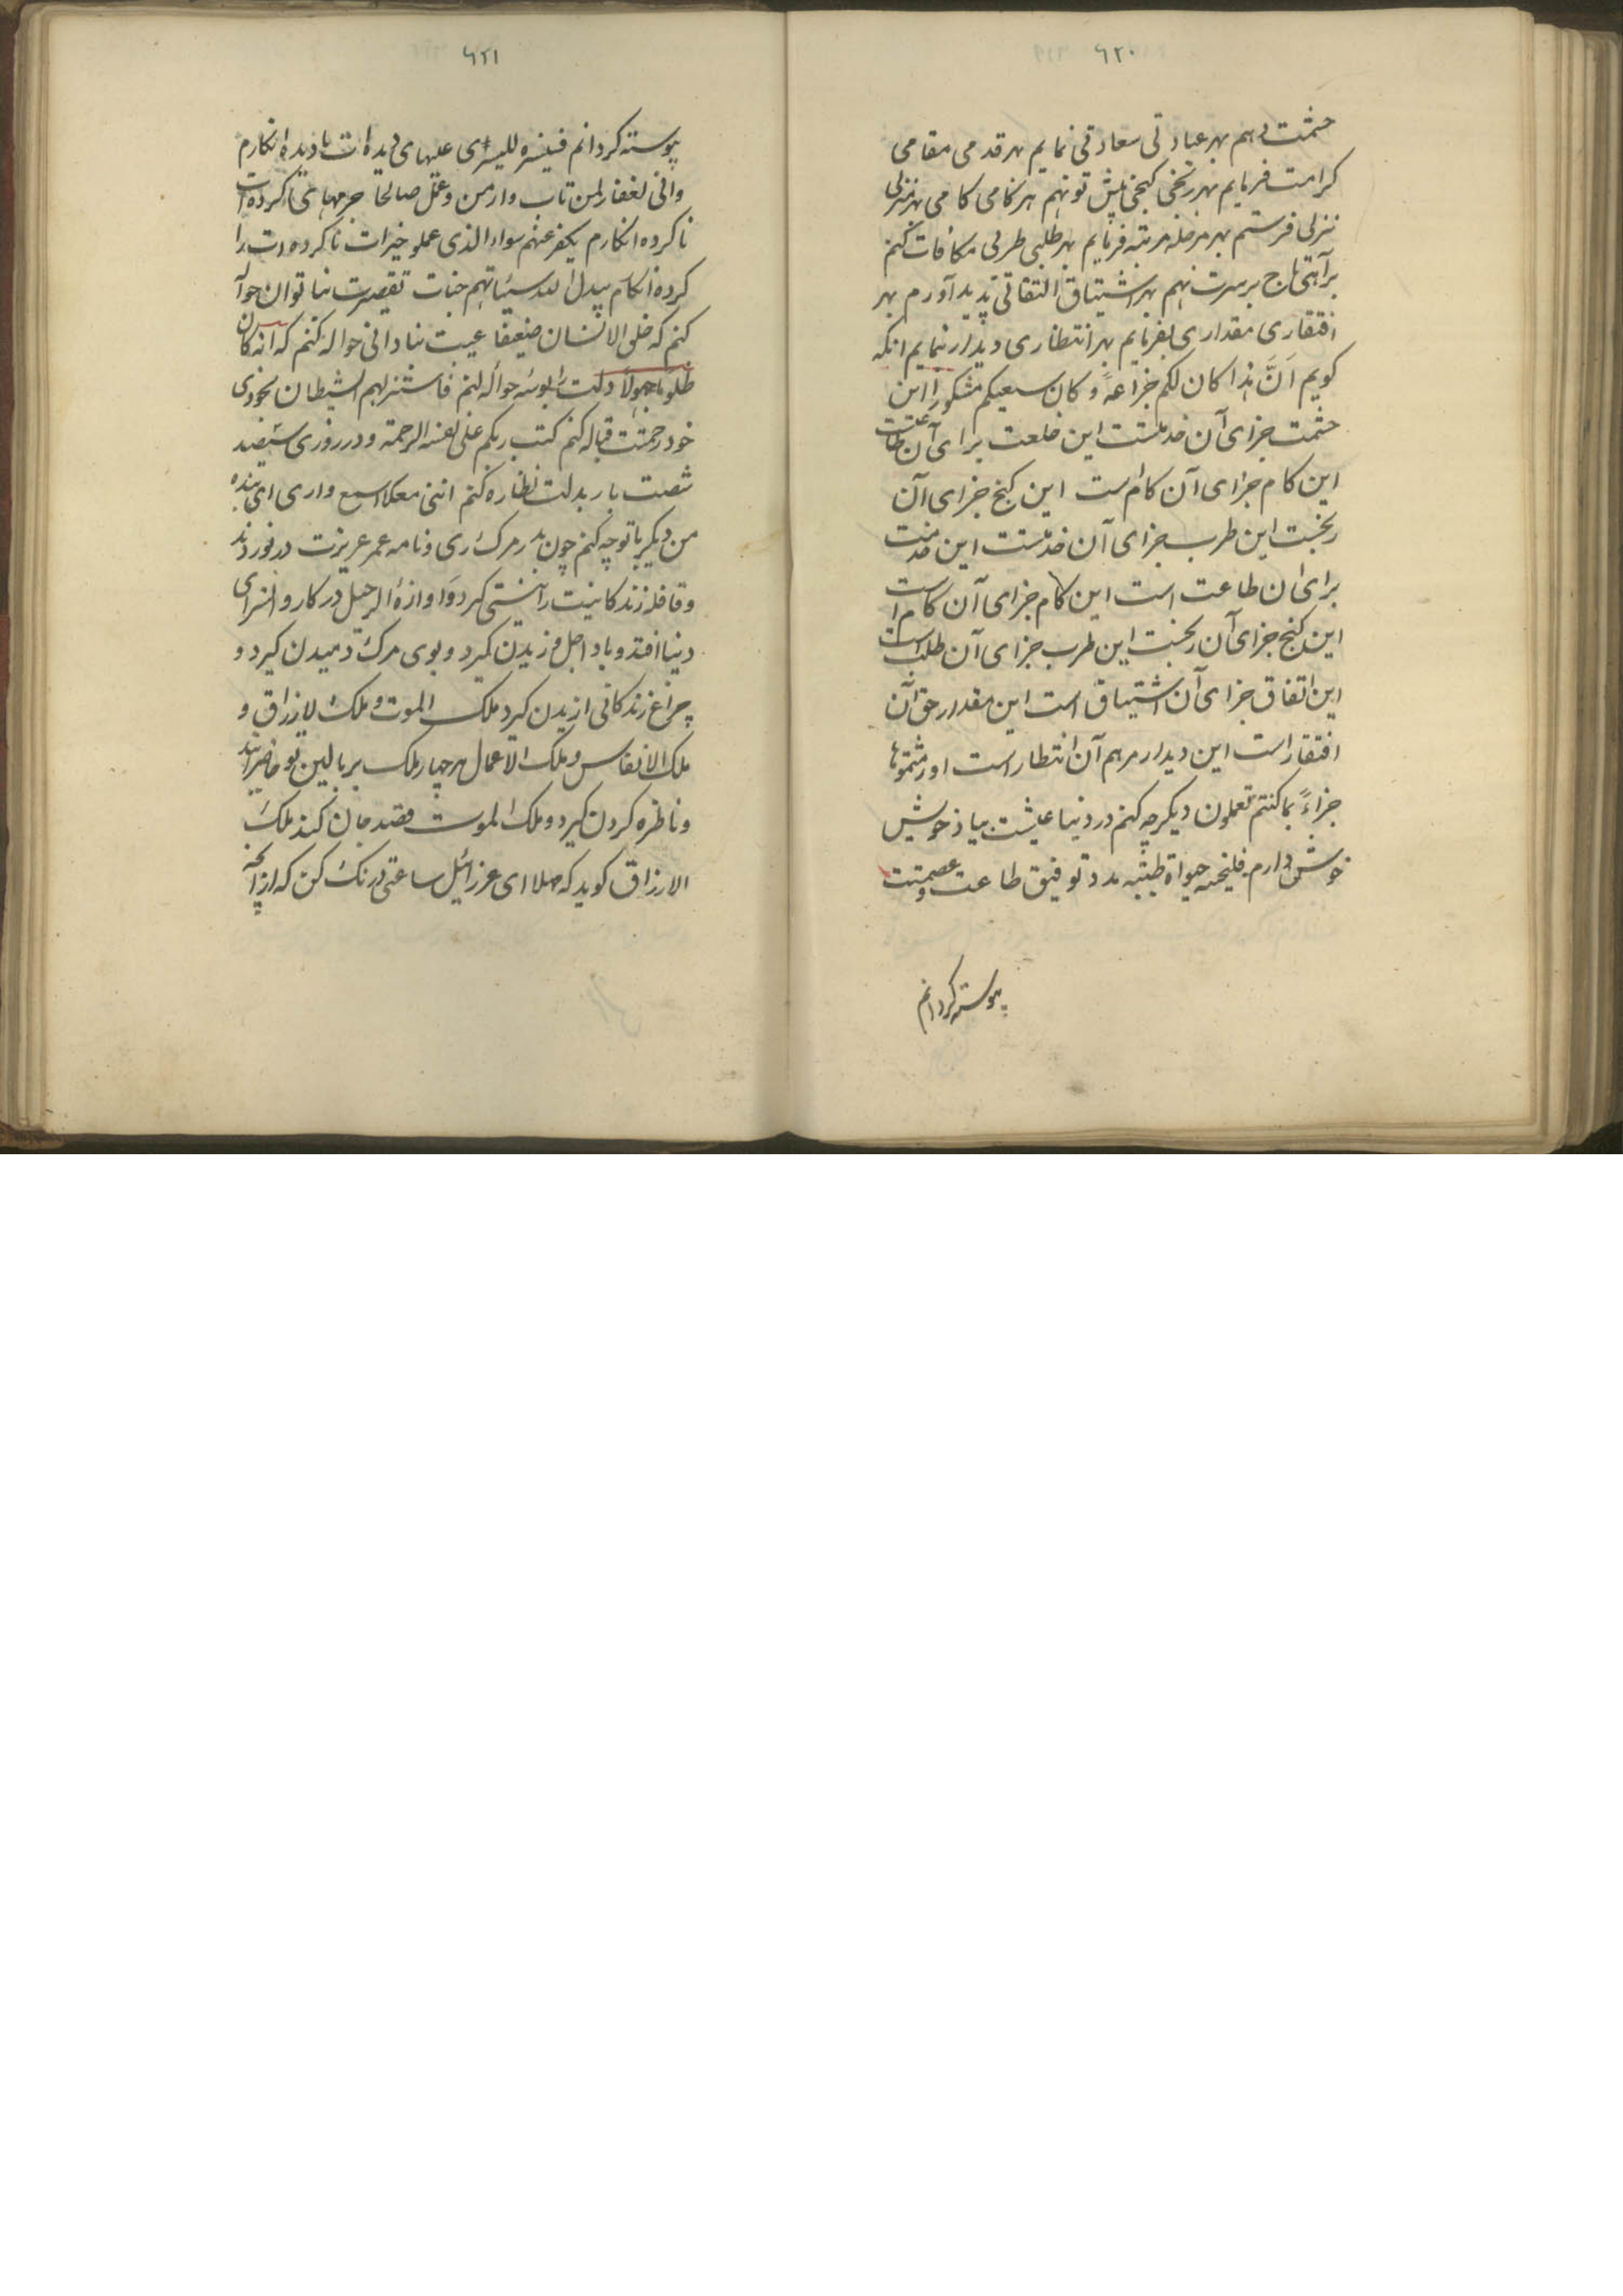 ۶۲۰
حشمت دهم بهر عبادتی سعادتی نمایم بهر قدمی مقامی
کرامت فرمایم بهر رنجی کنجی پیش تو نهم هر نکامی کامی بهر منزلی
نزلی فرستم بهر مرحله مرتبه فرمایم بهر طلبی طربی مکافات کنم
برآهی تاج برسرت نهم بهر اشتیاق التقاتی پدید آورم بهر
افتقاری مقداری بفرمایم بهر انتظاری دیدار بنمایم انکه
کویم اَنَّ هذا کان لکم جزاءً وکان سعیکم مشکورا این
حشمت جزای آن خدمتست این خلعت برای آن طاعتست
این کام جزای آن کام است این کنج جزای آن
رنجست این طرب جزای آن خدمتست این خدمت
برای آن طاعت است این کام جزای آن کام است
این کنج جزای آن رنجست این طرب جزای آن طلب است
این اتفاق جزای آن اشتیاق است این مقدار حق آن
افتقار است این دیدار مرهم آن انتظار است اورثتموها
جزاءً بما کنتم تعملون دیکر چه کنم در دنیا عیشت بیاد خویش
خوش دارم فلنحیینه حیواة طیبه مدد توفیق طاعت وعصمتت
پیوسته کردانم
۶۲۱
پیوسته کردانم فسنیسره للیسری عیبهای دیده ات نادیده انکارم
وانی لغفار لمن تاب وامن وعمل صالحا جرمهای کرده ات
ناکرده انکارم یکفر عنهم سواء الذی عملو خیرات ناکرده ات را
کرده انکارم یبدل الله سیئاتهم حسنات تقصیرت بناتوان حواله
کنم که خلق الانسان ضعیفا عیبت بنادانی حواله کنم که انه کان
ظلوما جهولاً ذلت بوسوسه حواله کنم فاستزلهم الشیطان بخودی
خود رحمتت قباله کنم کتب ربکم علی نفسه الرحمة ودر روزی سیصد
شصت بار بدلت نظاره کنم اننی معکما اسمع واری ای بنده
من دیکر باتو چه کنم چون بدر مرک رسی ونامه عمر عزیزت در نوردند
وقافله زندکانیت رانیستی کیرد واوازۀ الرحیل در کاروانسرای
دنیا افتد وباد اجل وزیدن کیرد وبوی مرک دمیدن کیرد و
چراغ زندکانی ازیدن کیرد ملک الموت وملک لارزاق و
ملک الانفاس وملک الاعمال هر چهار ملک بر بالین تو حاضر ایند
وناظره کردن کیرد وملک الموت قصد جان کند ملک
الارزاق کوید که مهلا ای عزرائیل ساعتی درنک کن که از آنچه